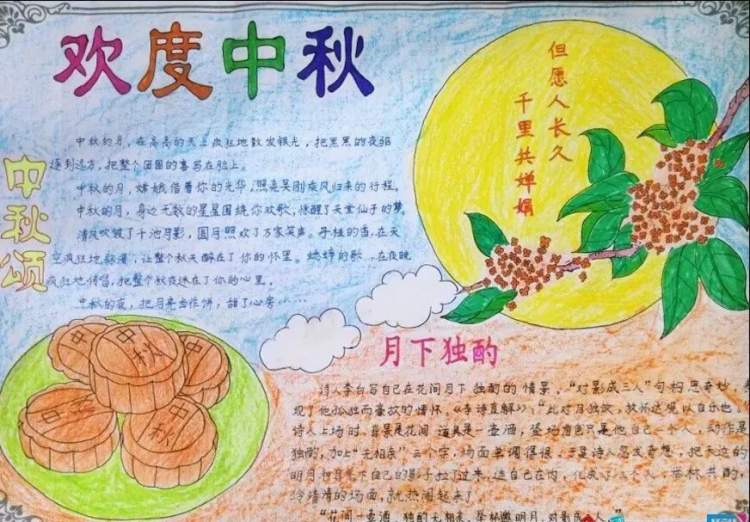 欢度中秋
但愿人长久
千里共婵娟
中秋颂
中秋的月，在高高的天上疯狂地散发银光，把黑黑的夜驱
逐到远方，把整个团圆的喜写在脸上。
中秋的月，嫦娥借着你的光华，照亮吴刚疾风归来的行程。
中秋的月，身边无数的星星围绕你欢歌，惊醒了天堂仙子的梦。
清风吹皱了千池月影，圆月照欢了万家笑声。丹桂的香，在天
空疯狂地弥漫，让整个秋天醉在了你的怀里。蟋蟀的歌，在夜晚
疯狂地传唱，把整个秋夜迷在了你的心里。
中秋的夜，把月亮当作饼，甜了心房……
中秋
中秋
中秋
月下独酌
诗人李白写自己在花间月下独酌的情景。“对影成三人”句构思奇妙，表
现了他孤独而豪放的情怀。《李诗直解》：“此对月独饮，放怀达观以自乐也。
诗人上场时，背景是花间，道具是一壶酒，登场角色只是他自己一个人，动作是
独酌，加上“无相亲”三个字，场面单调得很。于是诗人忽发奇想，把天边的
明月和月光下自己的影子拉了过来，连自己在内，化成了三个人，举杯共酌，
冷清清的场面，就热闹起来了
“花间一壶酒，独酌无相亲。举杯邀明月，对影成三人。”